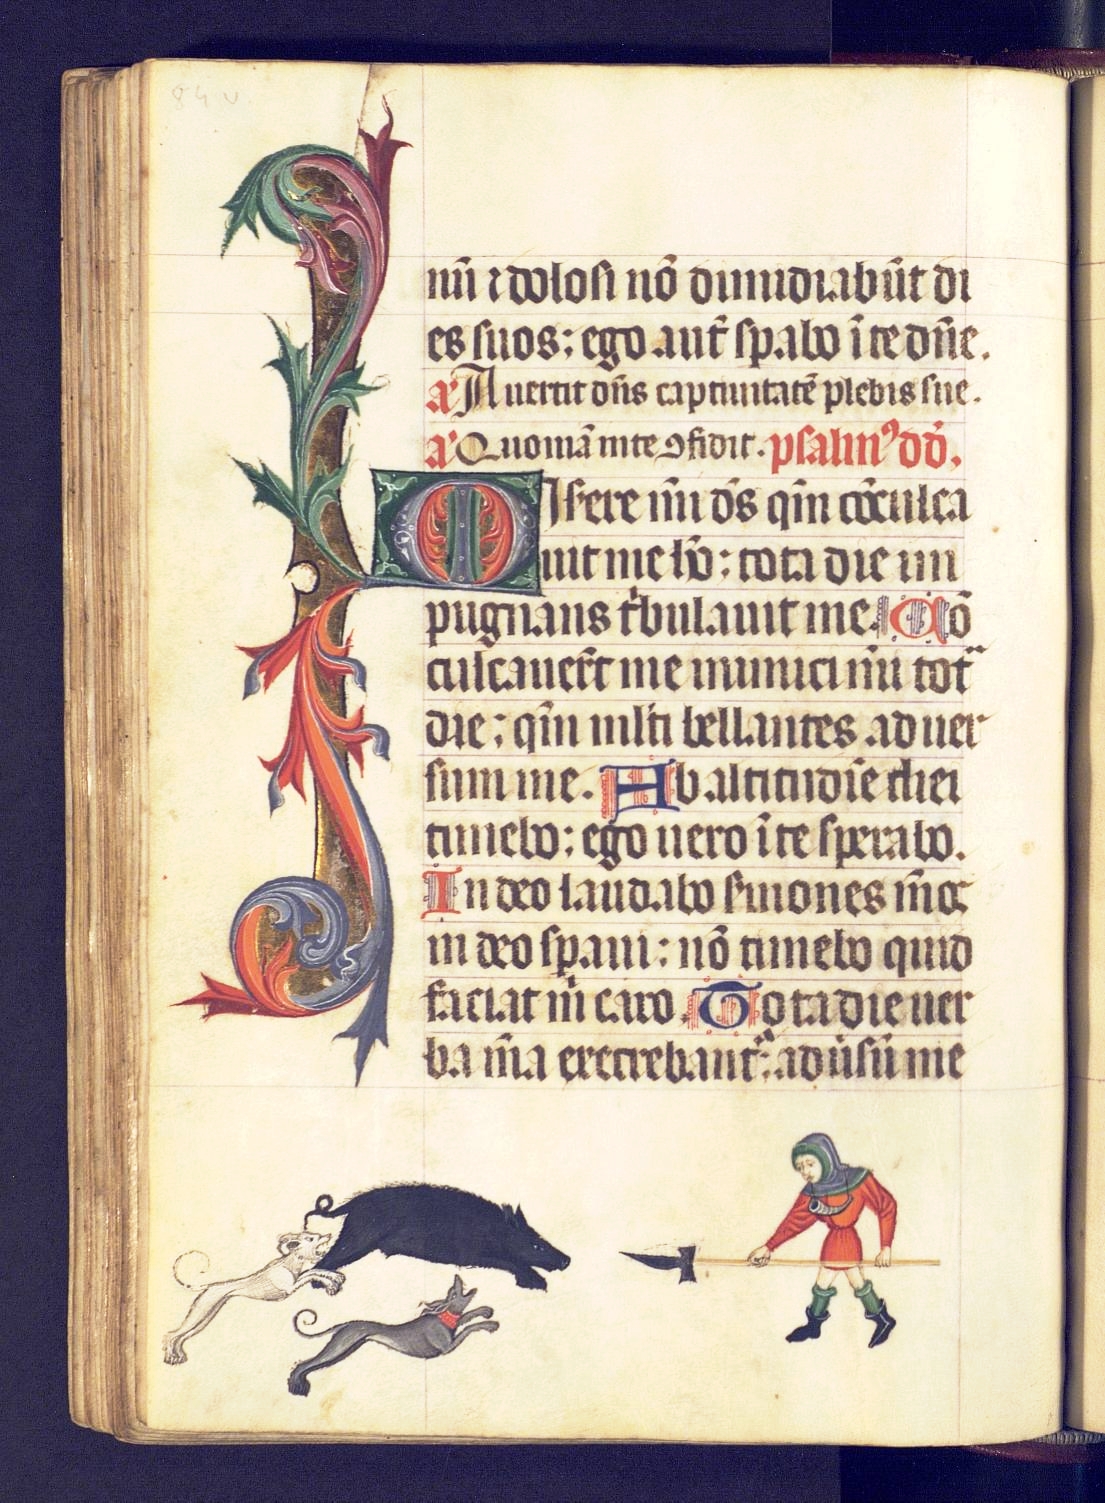 84 v
nu᷑ ⁊ dolosi nō dimidiabūt di
es suos; ego aut̄ sp̄abo ī te dn̄e.
a᷑ Auertit dn̄s captiuitatē plebis sue.
a᷑ Quoniā in te ꝯfidit. psalmꝰ dd̄.
Misere m̄i ds̄ qm̄ cōculca
uit me hō; tota die im
pugnans t᷑bulauit me. Cō
culcauer̄t me inimici m̄i tot᷑
die; qm̄ mlti bellantes aduer
sum me. Ab altitudīe diei
timebo; ego uero ī te sperabo.
In deo laudabo s᷑mones m̄os
in deo sp̄aui; nō timebo quid
faciat m̄ caro. Tota die uer
ba m̄a execrebant᷑; adu᷑sū me